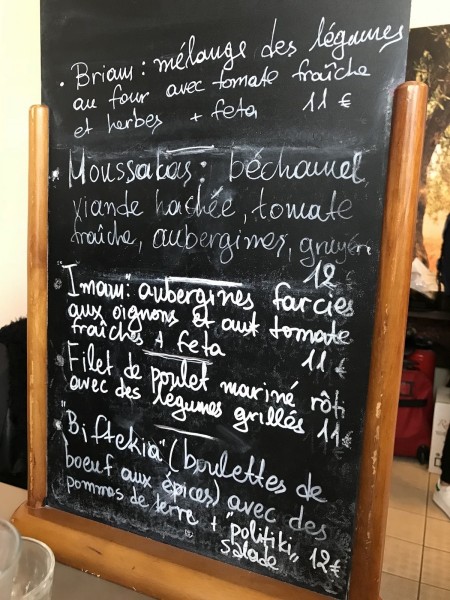 . Briam : mélange des légumes
au four avec tomate fraîche
et herbes + feta 11 €
Moussakas : béchamel,
viande hachée, tomate
fraîche, aubergines, gruyère
12 €
"Imam": aubergines farcies
aux oignons et aux tomate
fraîches + feta 11 €
Filet de poulet mariné rôti
avec des légumes grillés 11 €
"Biftekia" (boulettes de
boeuf aux épices) avec des
pommes de terre + "politiki"
salade 12 €